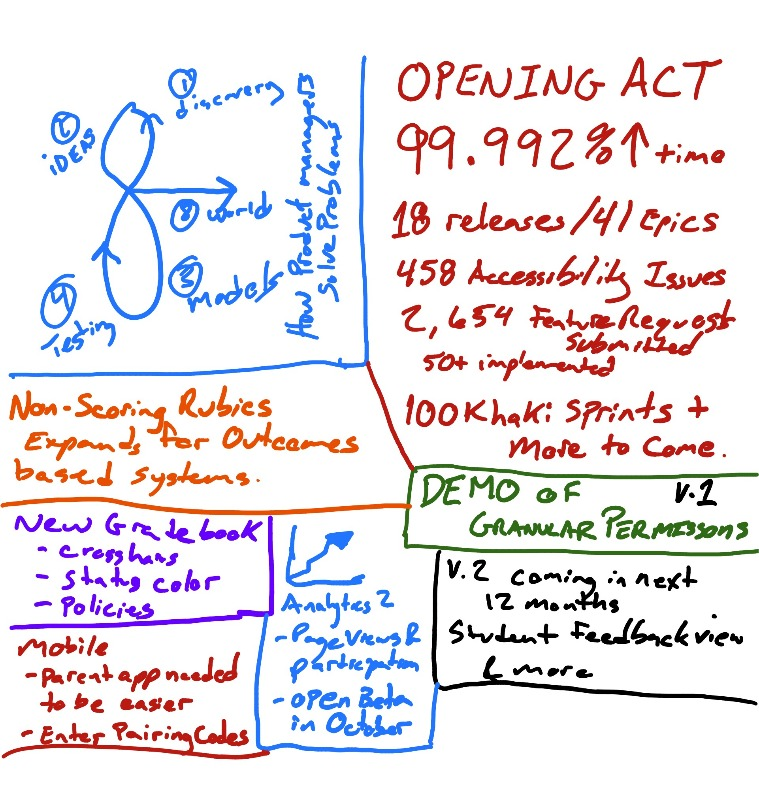 ① discovery
② iDEAS
⑧ world
③ models
④ Testing
How Product managers
Solve Problems
OPENING ACT
99.992% ↑ time
18 releases/41 Epics
458 Accessibility Issues
2,654 Feature Request
Submitted
50+ implemented
100 Khaki Sprints +
More to Come.
Non-Scoring Rubics
Expands for Outcomes
based systems.
DEMO OF V.1
GRANULAR PERMISSONS
New Grade book
- Crosshairs
- Status color
- Policies
Analytics 2
- Page Views &
participation
- Open Beta
in October
V.2 coming in next
12 months
Student Feedback view
& more
Mobile
- Parent app needed
to be easier
- Enter Pairing Codes